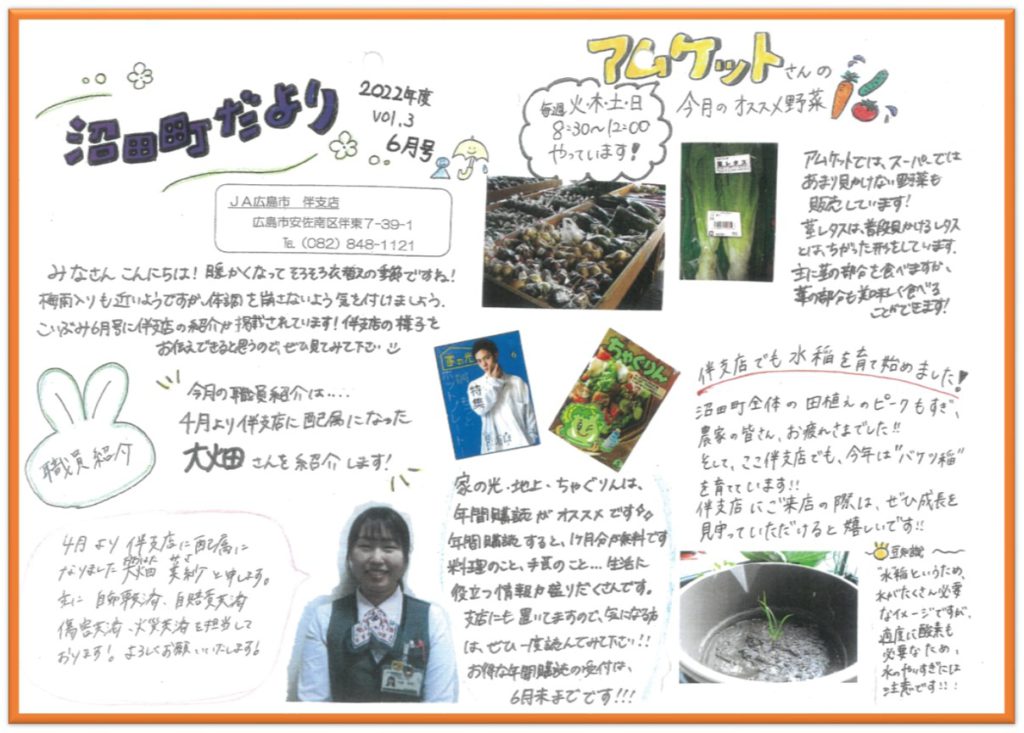 沼田町だより
2022年度
vol.3
6月号
JA広島市 伴支店
広島市安佐南区伴東7-39-1
℡ (082) 848-1121
みなさんこんにちは！暖かくなってそろそろ衣替えの季節ですね！
梅雨入りも近いようですが、体調を崩さないよう気を付けましょう。
こいぶみ6月号に伴支店の紹介が掲載されています！伴支店の様子を
お伝えできると思うので、ぜひ見てみて下さい
職員紹介
今月の職員紹介は....
4月より伴支店に配属になった
大畑さんを紹介します！
4月より伴支店に配属に
なりました大畑 と申します。
主に自動車共済、自賠責共済
傷害共済、火災共済を担当して
おります！よろしくお願いいたします！
アムケットさんの
今月のオススメ野菜
毎週火・木・土・日
8:30〜12:00
やっています！
茎レタス
アムケットでは、スーパーでは
あまり見かけない野菜も
販売しています！
茎レタスは、普段見かけるレタス
とは、ちがった形をしています。
主に茎の部分を食べますが、
葉の部分も美味しく食べる
ことができます！
家の光
6
特集
ちゃぐりん
家の光・地上・ちゃぐりんは、
年間購読がオススメです
年間購読すると、1ヶ月分が無料です
料理のこと、手芸のこと...生活に
役立つ情報が盛りだくさんです。
支店にも置いてますので、気になる方
は、ぜひ一度読んでみて下さい！！
お得な年間購読の受付は、
6月末までです！！！
伴支店でも水稲を育て始めました！
沼田町全体の田植えのピークもすぎ、
農家の皆さん、お疲れさまでした！！
そして、ここ伴支店でも、今年は"バケツ稲"
を育てています！！
伴支店にご来店の際は、ぜひ成長を
見守っていただけると嬉しいです！！
豆知識
"水稲というため、
水がたくさん必要
なイメージですが、
適度に酸素も
必要なため、
水のやりすぎには
注意です！！